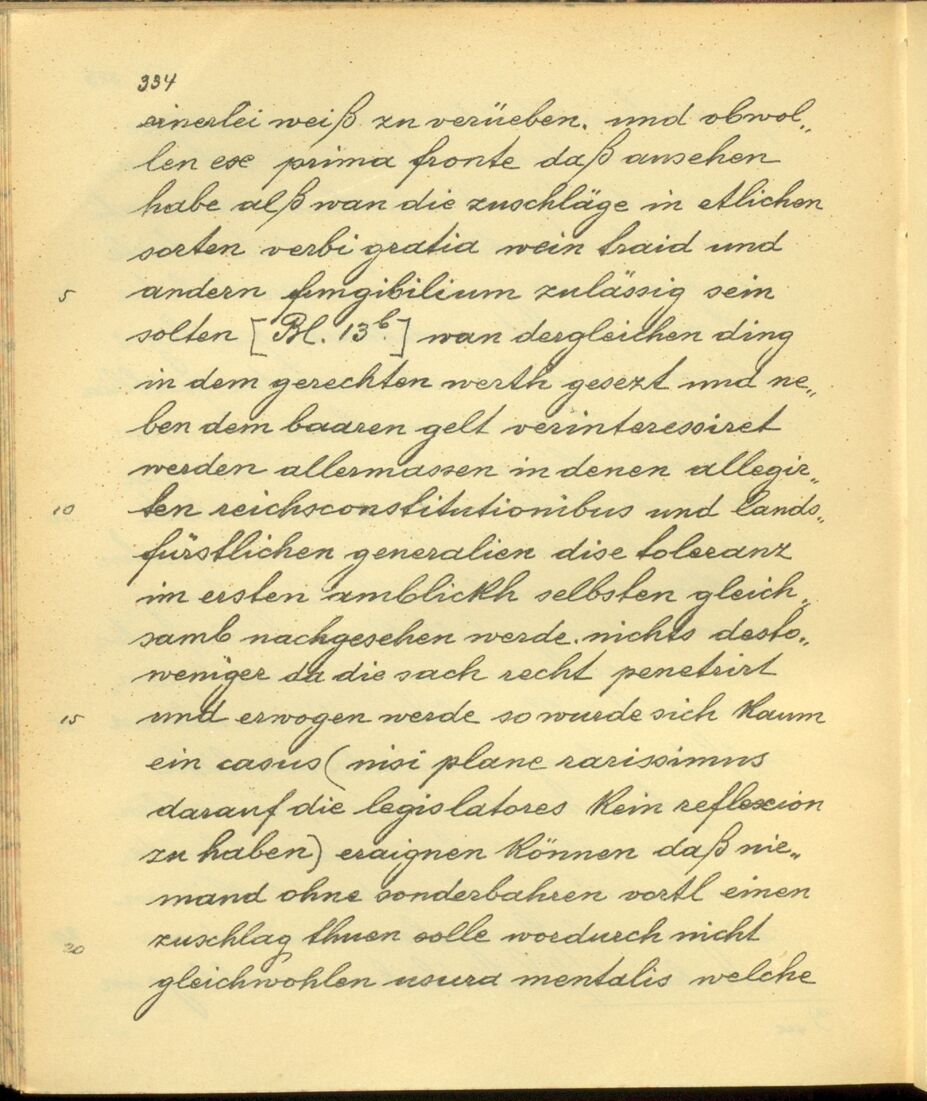 334
einerlei weiß zu verüeben. und obwol„
len ex prima fronte daß ansehen
habe alß wan die zuschläge in etlichen
sorten verbi gratia wein traid und
5 andern fungibilium zulässig sein
solten [Bl. 13b.] wan dergleichen ding
in dem gerechten werth gesezt und ne„
ben dem baaren gelt verinteressiret
werden allermassen in denen allegir„
10 ten reichsconstitutionibus und lands„
fürstlichen generalien dise toleranz
im ersten amblickh selbsten gleich„
samb nachgesehen werde. nichts desto„
weniger da die sach recht penetrirt
15 und erwogen werde so wurde sich kaum
ein casus (nisi plane rarissimus
darauf die legislatores kein reflexion
zu haben) eraignen können daß nie„
mand ohne sonderbahren vortl einen
20 zuschlag thuen solle wordurch nicht
gleichwohlen usura mentalis welche